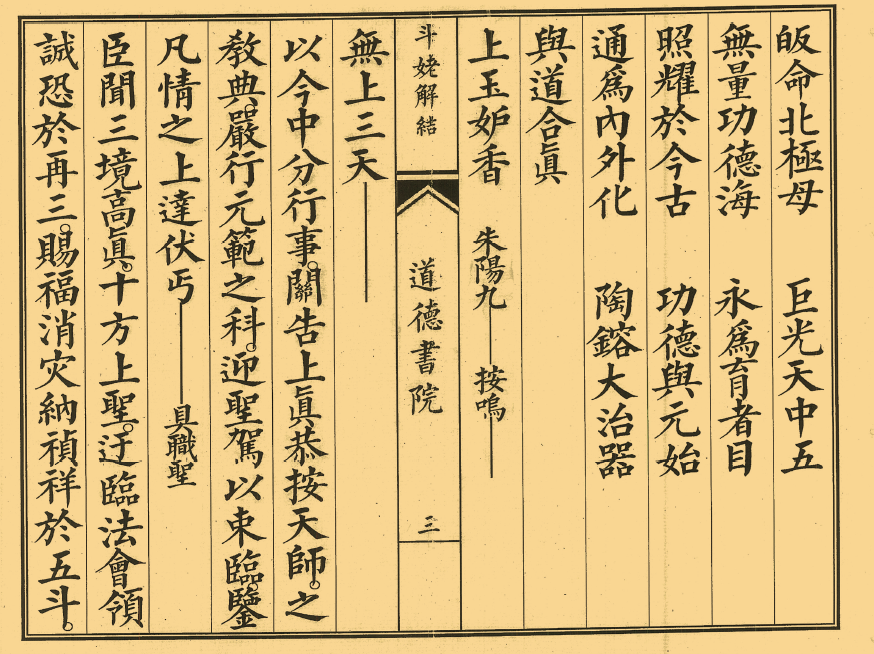 皈命北極母　巨光天中五
無量功德海　永爲育者目
照耀於今古　功德與元始
通爲內外化　陶鎔大治器
與道合眞
上玉妒香　朱陽九｜　按鳴｜
斗姥解結　道德書院　三
無上三天｜
以今中分行事。關告上眞恭按天師。之
教典。嚴行元範之科。迎聖駕以東臨。鑒
凡情之上達伏丐｜具職聖
臣聞三境高眞。十方上聖。迂臨法會領
誠恐於再三。賜福消灾納禎祥於五斗。